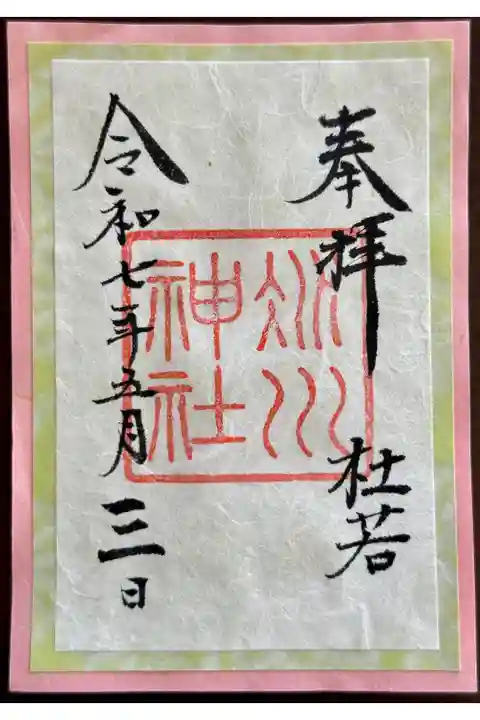 奉拝
杜若
冰川
神社
令和七年五月三日